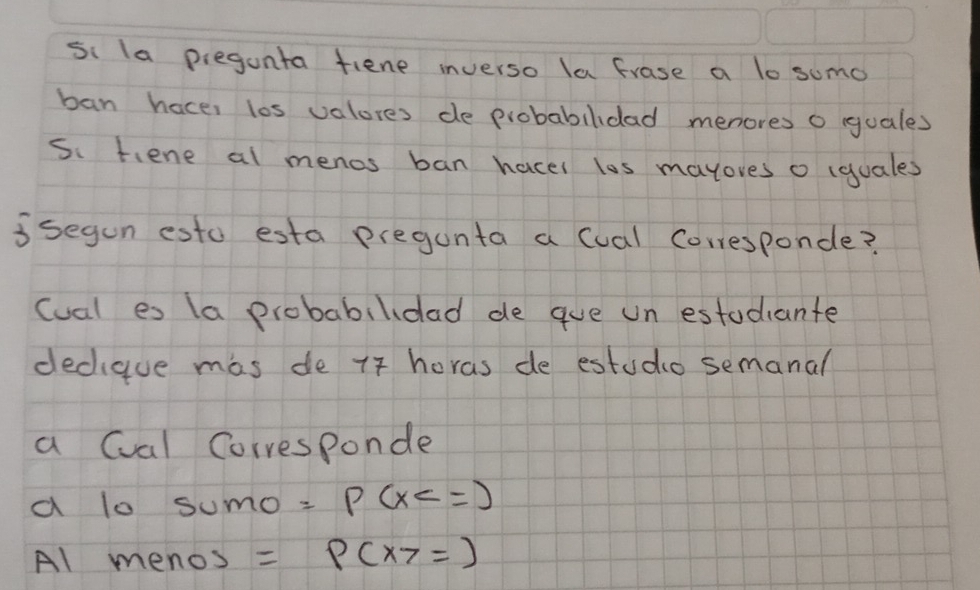 Si la pregunta tiene inverso la frase a lo sumo
ban hacer los valores de probabilidad menores o iguales
Si tiene al menos ban hacer los mayores o iguales
¿Segun esto esta pregunta a cual corresponde?
Cual es la probabilidad de que un estudiante
dedique más de 17 horas de estudio semanal
a Cual Corresponde
a lo sumo = P(x<=)
Al menos = P(x>=)